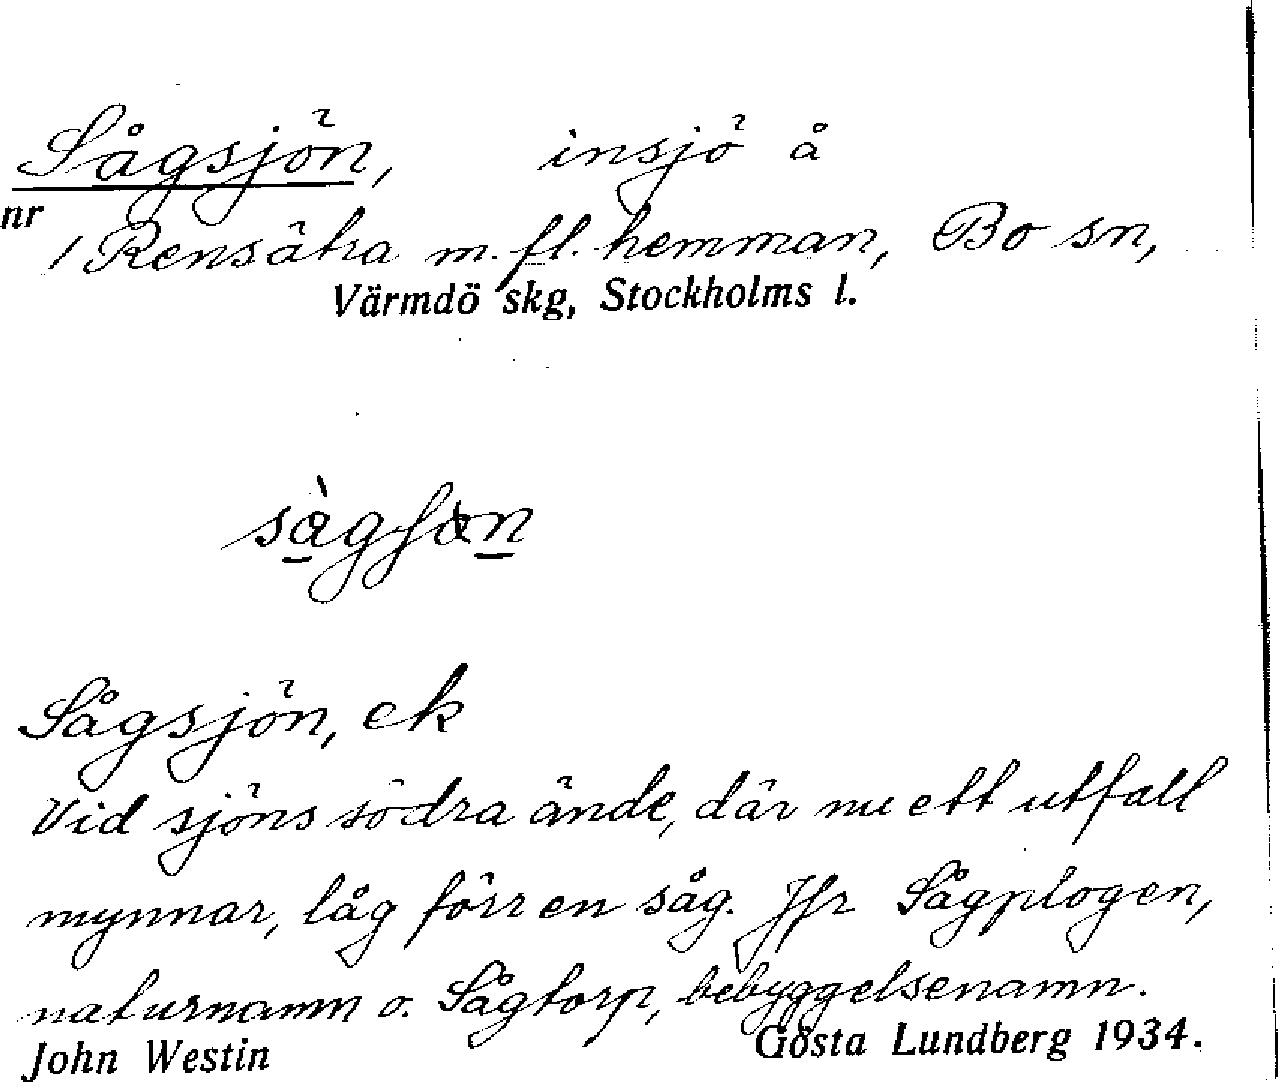 Sågsjön, insjö å
nr
1 Rensätra m. fl. hemman, Bo sn,
Värmdö skg, Stockholms l.
Sågsjön, ek
Vid sjöns södra ände, där nu ett utfall
mynnar, låg förr en såg. Jfr Sågplogen,
naturnamn o. Sågtorp, bebyggelsenamn.
John Westin Gösta Lundberg 1934.